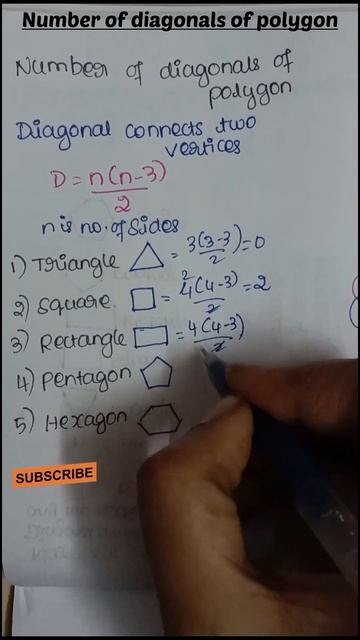 Number of diagonals of polygon
Number of diagonals of
polygon
Diagonal connects two
vertices
D = n(n-3)/2
n is no. of sides
1) Triangle = 3(3-3)/2 = 0
2) Square = 4(4-3)/2 = 2
3) Rectangle = 4(4-3)/2
4) Pentagon
5) Hexagon
SUBSCRIBE